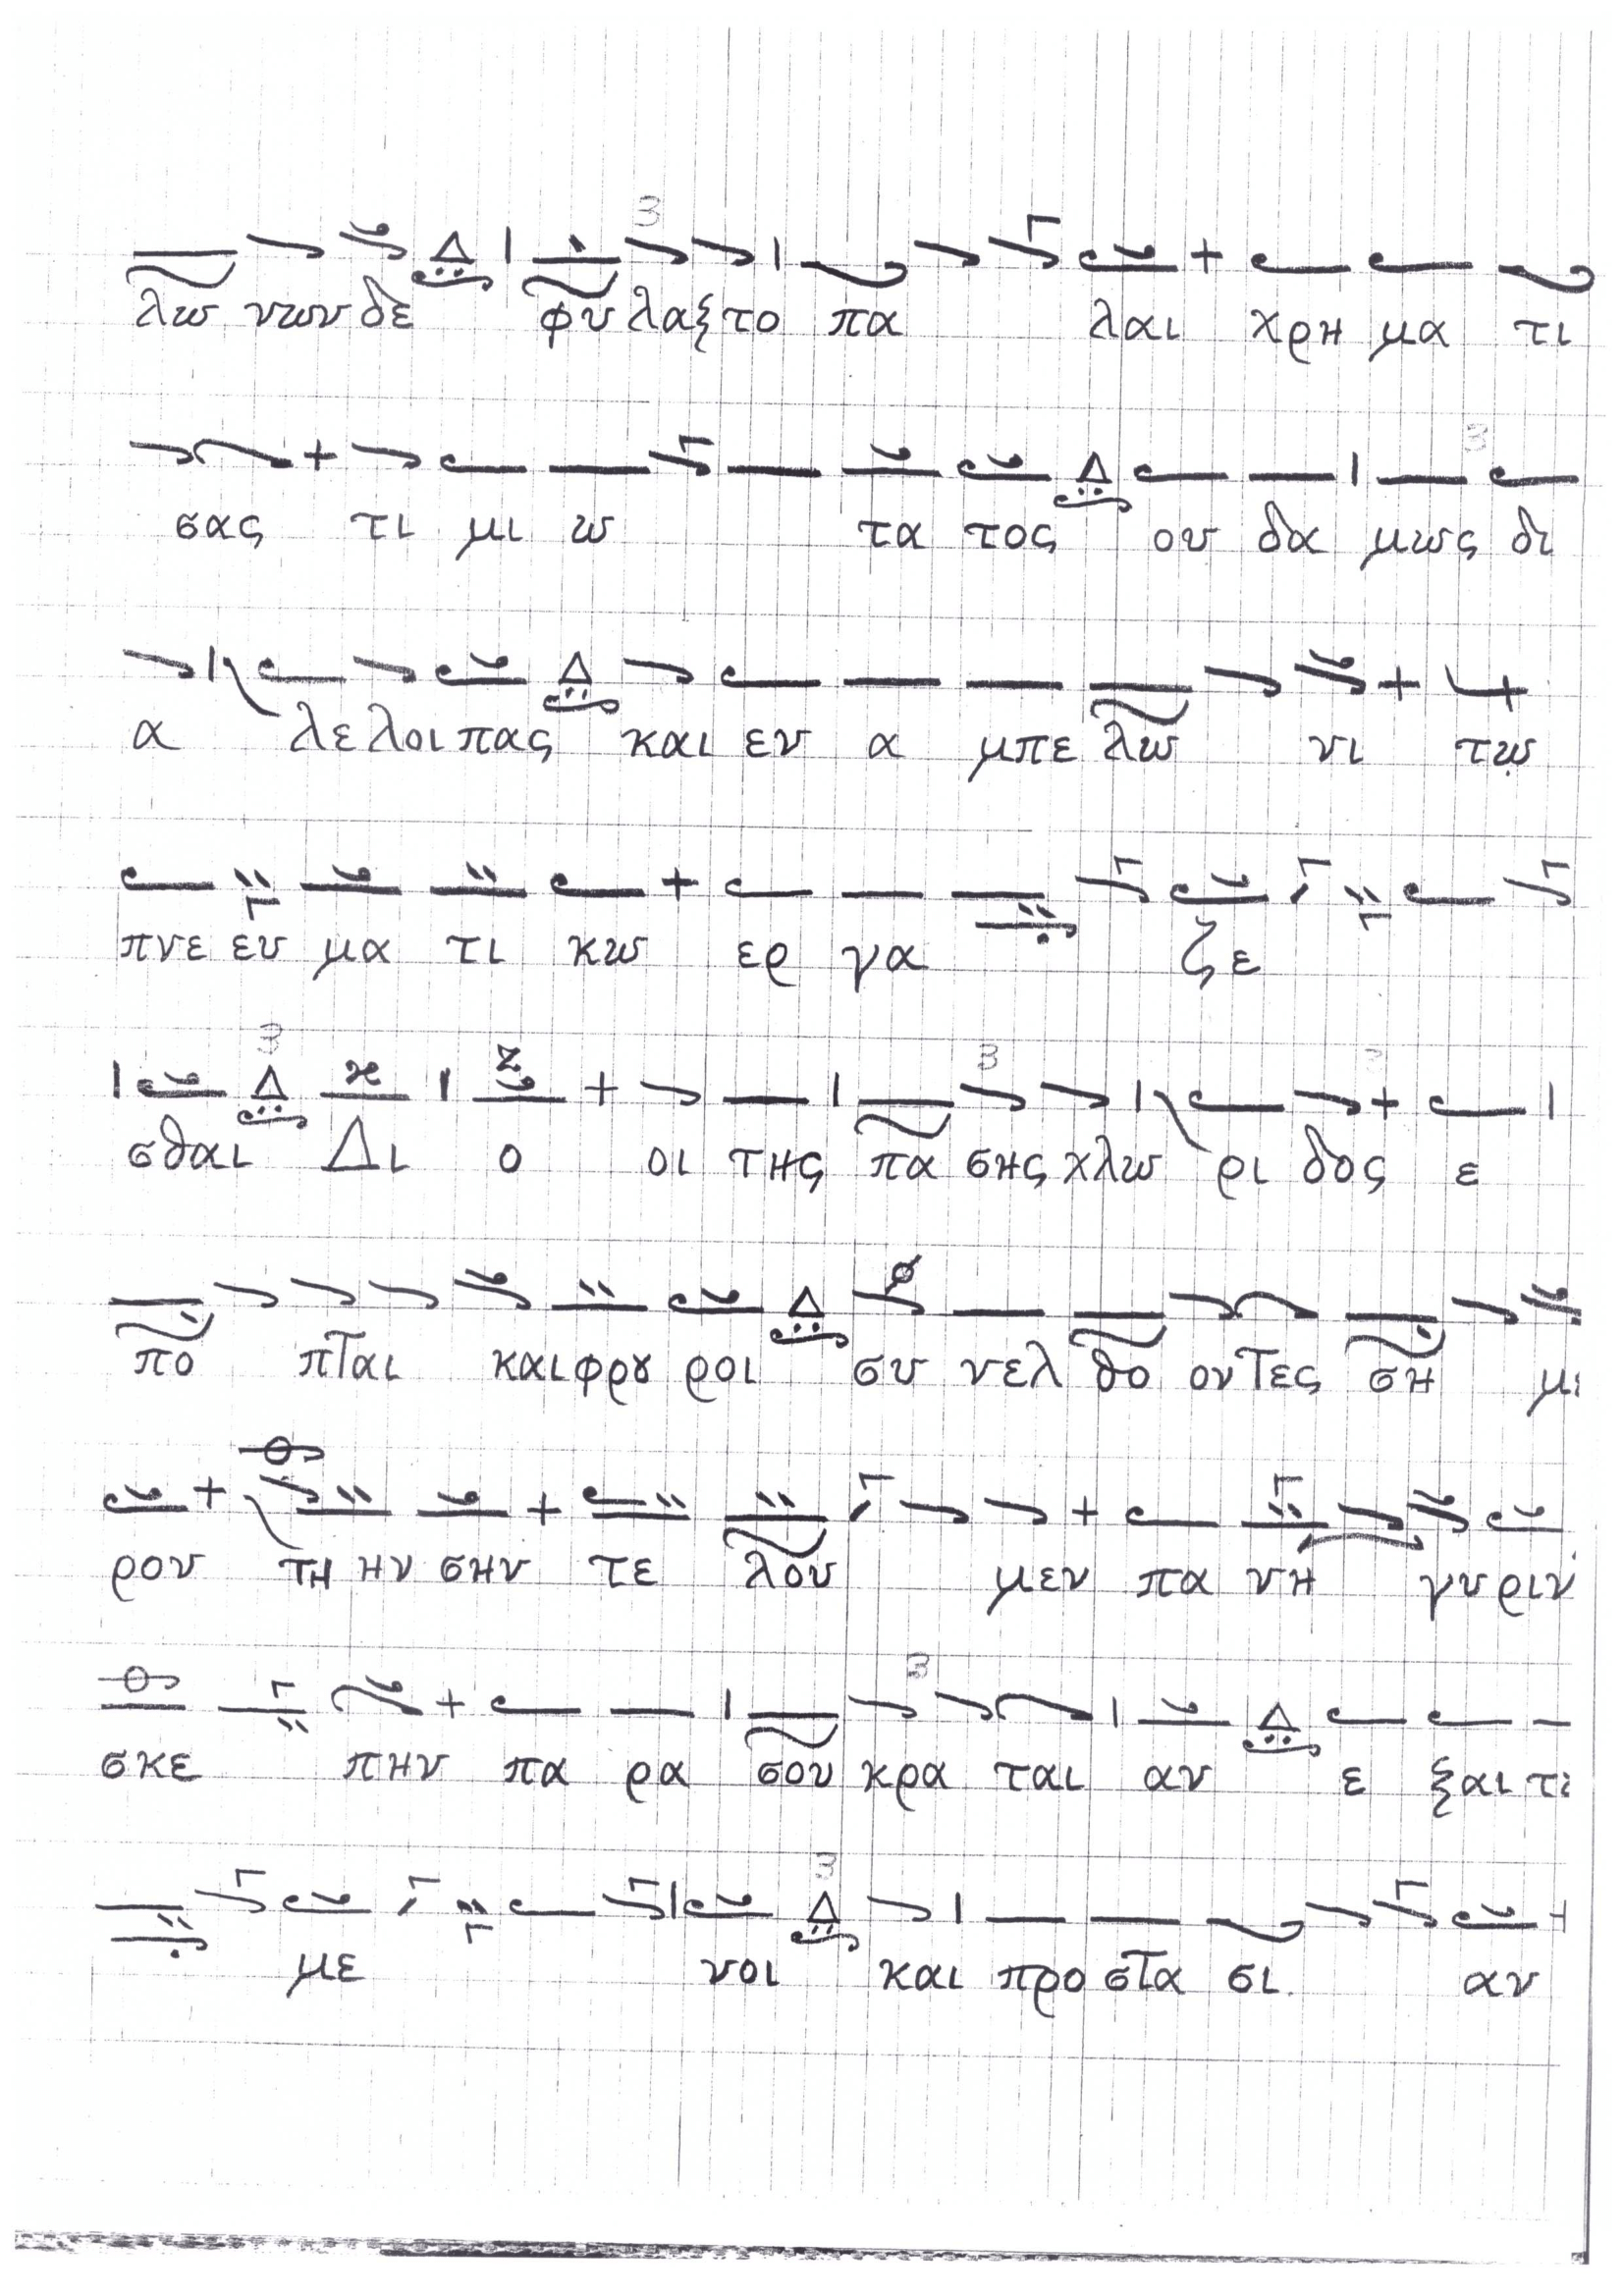 λω νων δε φυ λαξ το πα λαι χρη μα τι
σας τι μι ω τα τος ου δα μως δι
α λε λοι πας και εν α μπε λω νι τῳ
πνε ευ μα τι κω ερ γα ζε
σθαι Δι ο οι της πα σης χλω ρι δος ε
πο πται και φρου ροι συ νελ θο οντες ση με
ρον τη ην σην τε λου μεν πα νη γυριν
σκε πην πα ρα σου κρα ται αν ε ξαι τι
με νοι και προ στα σι αν